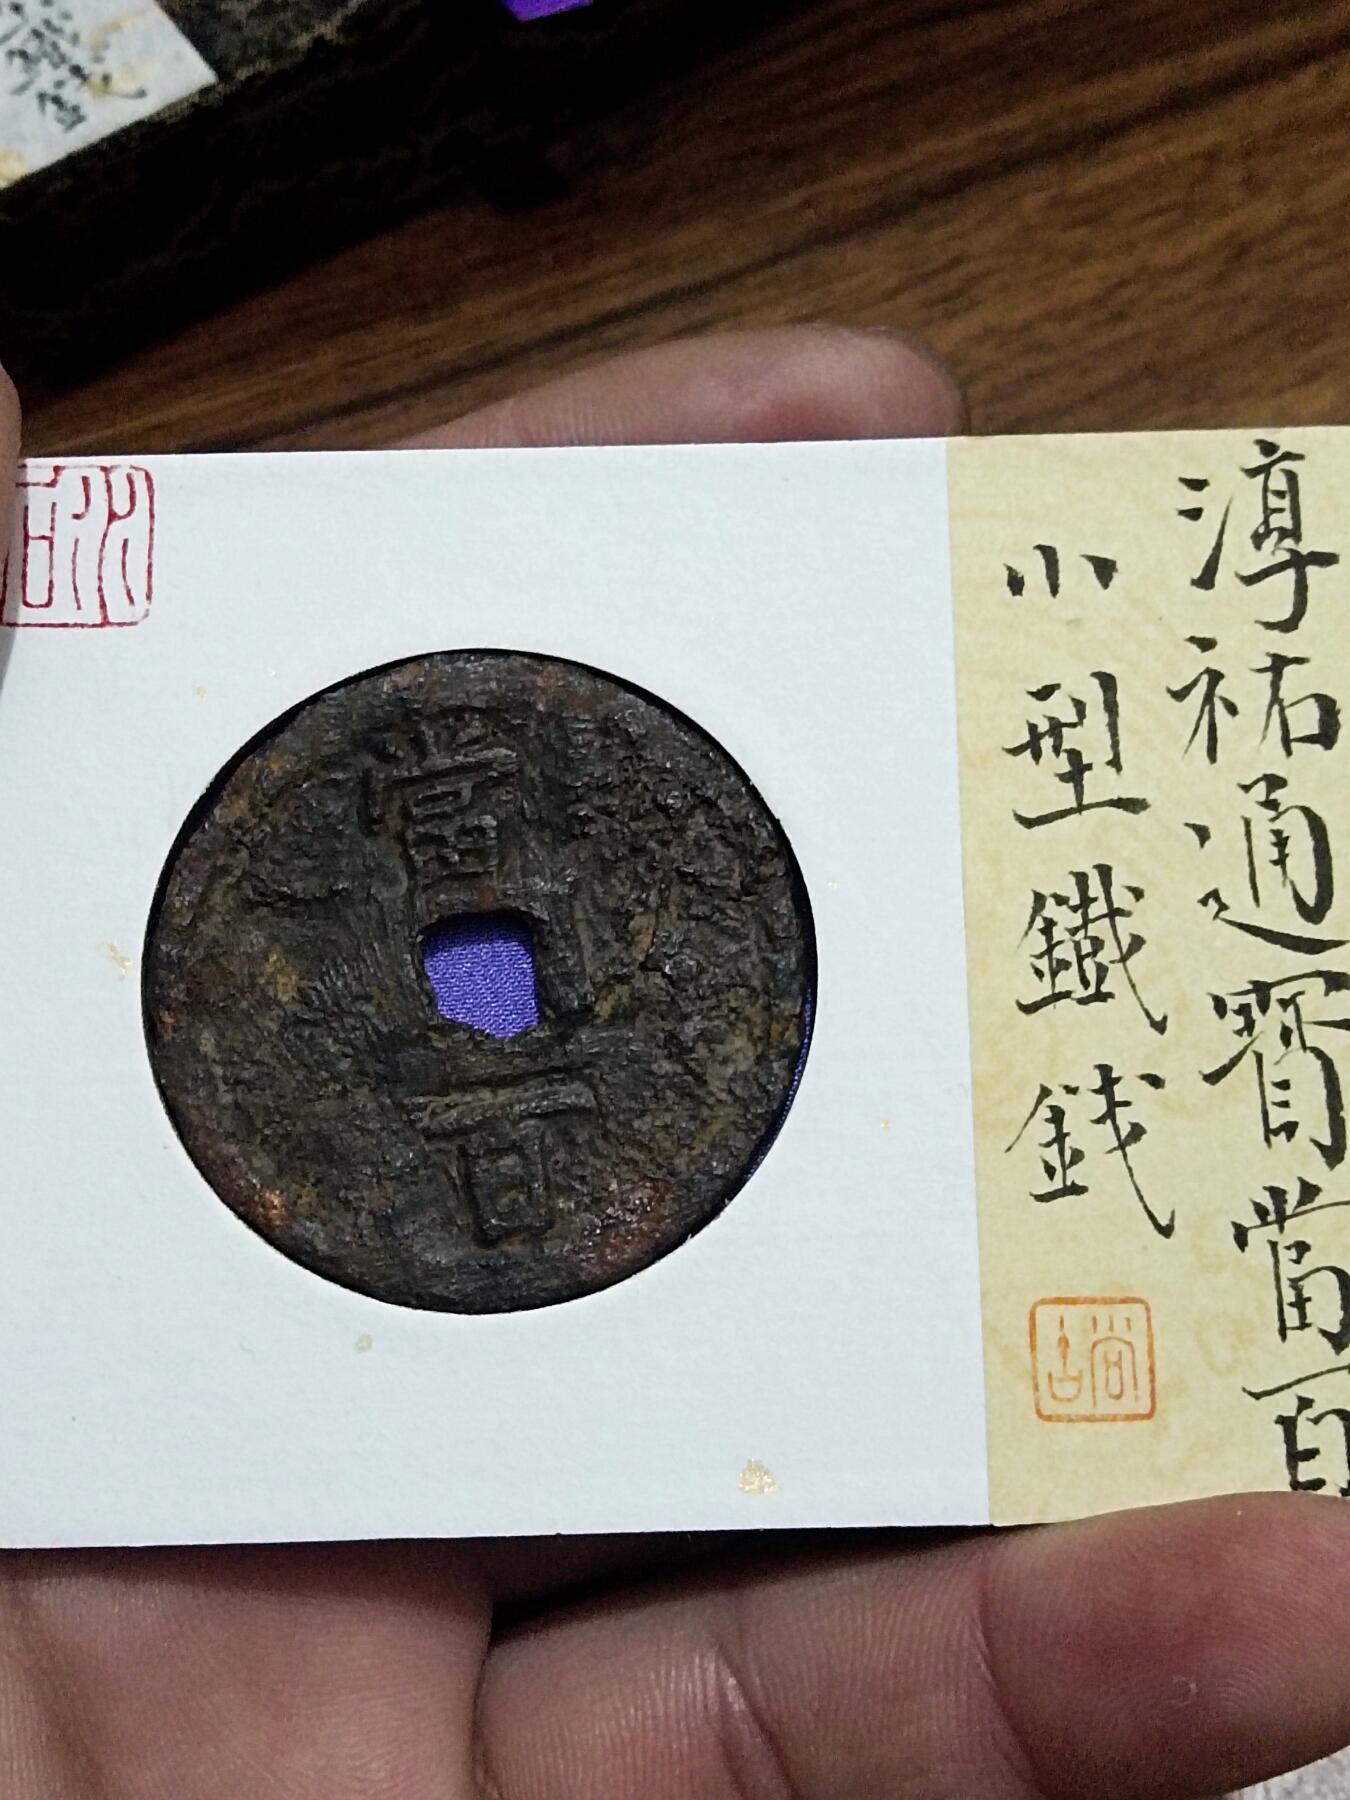 淳祐通寶當百
小型鐵錢
當
百